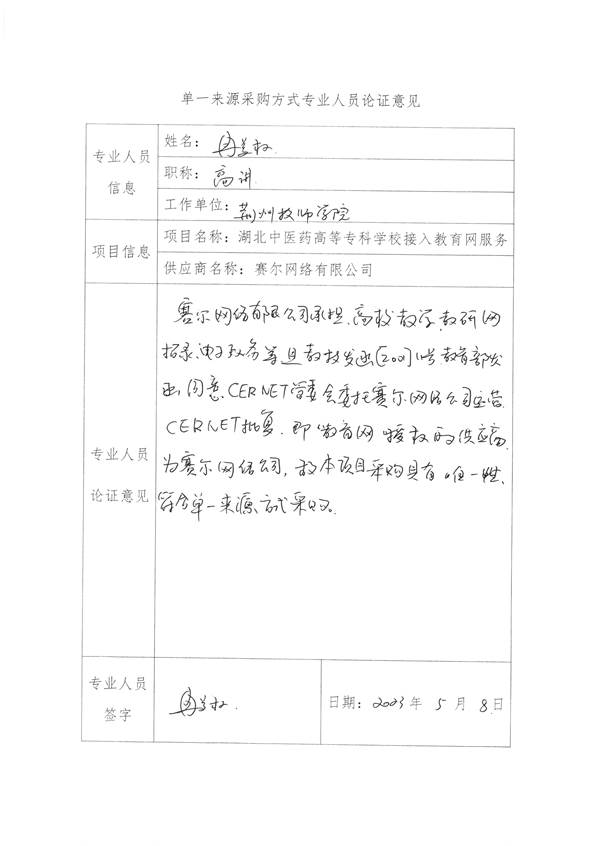 单一来源采购方式专业人员论证意见
专业人员
信息
姓名:
职称: 高讲
工作单位: 荆州技师学院
项目信息
项目名称: 湖北中医药高等专科学校接入教育网服务
供应商名称: 赛尔网络有限公司
专业人员
论证意见
赛尔网络有限公司承担、高校教学、教研网
招录、电子政务等且教技发函[200]1号教育部发
函同意、CERNET管委会委托赛尔网络公司运营
CERNET批复. 即教育网授权的供应商
为赛尔网络公司, 故本项目采购具有唯一性、
符合单一来源方式采购.
专业人员
签字
日期: 2023年 5 月 8 日